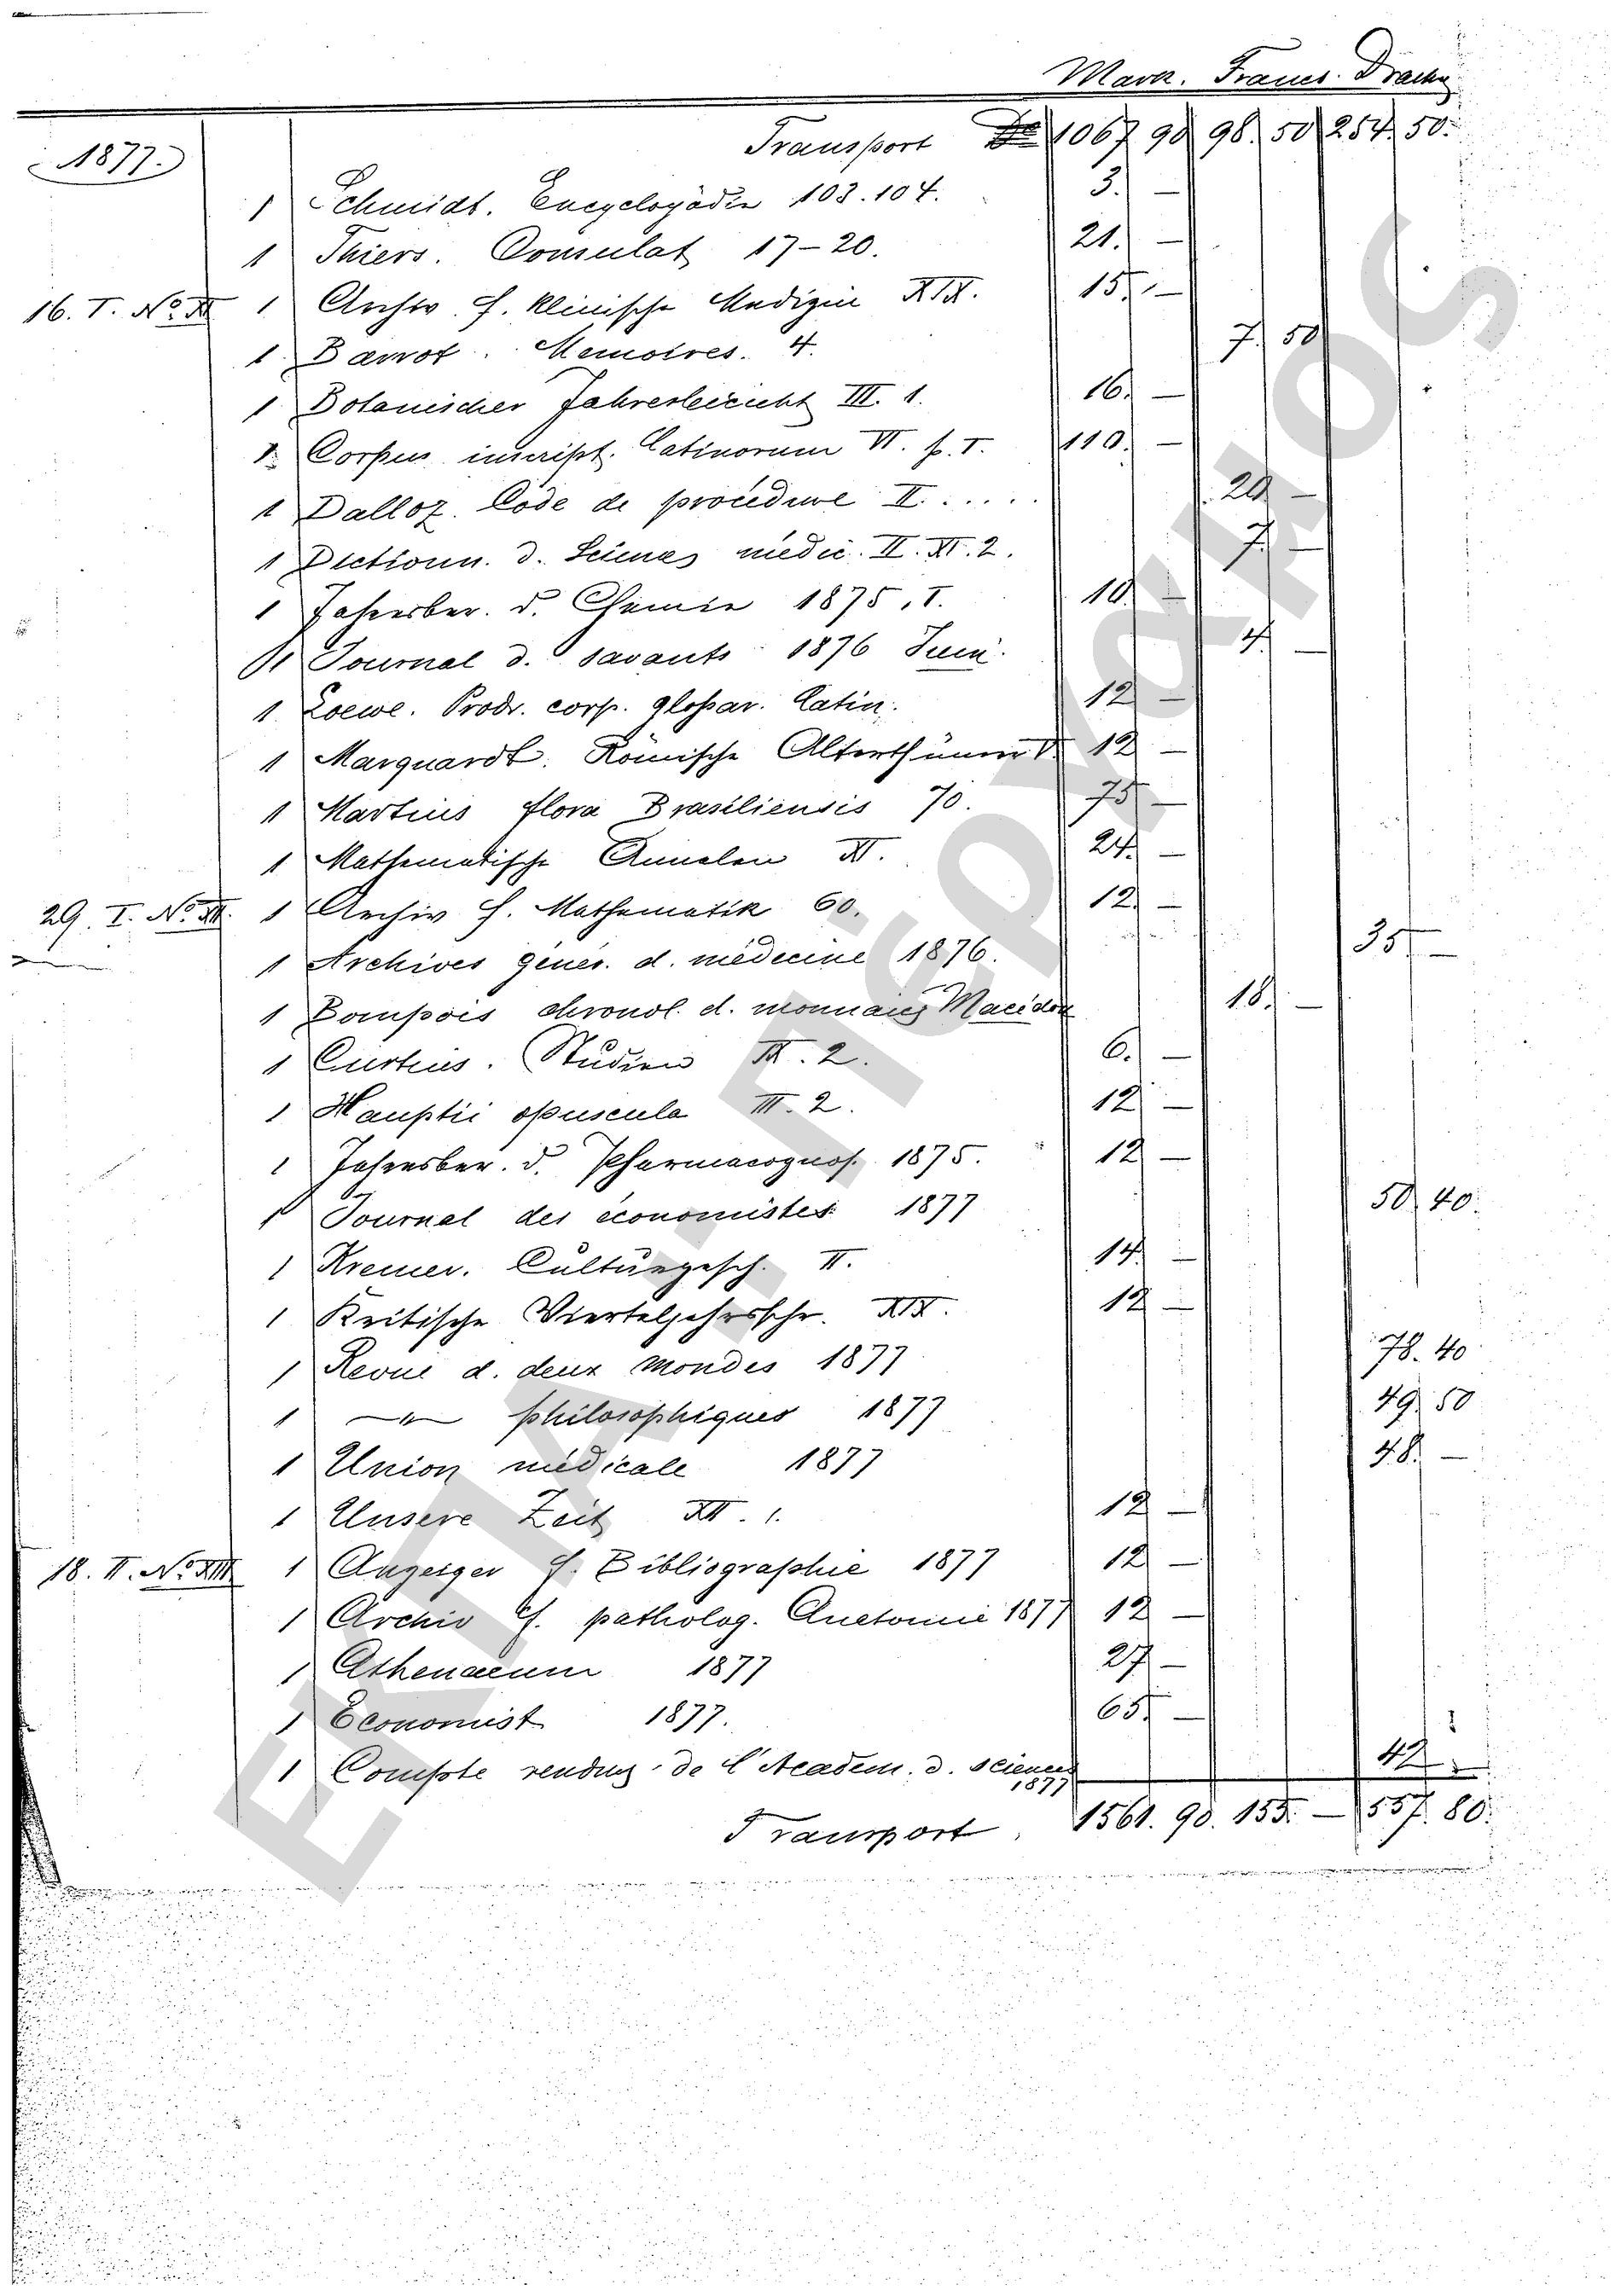 Mark. Francs. Drachm
Transport 1067 90 98. 50 254. 50.
1877.
1 Schmidt. Encyclopädie 103. 104. 3. —
1 Thiers. Consulat 17-20. 21. —
16. I. No. XI 1 Archiv f. klinische Medizin XIX. 15. —
1 Barrot. Memoires. 4. 7. 50
1 Botanischer Jahresbericht III. 1. 16. —
1 Corpus inscript. latinorum VI. p. I. 110. —
1 Dalloz. Code de procedure II. . . . . 20 —
1 Dictionn. d. Sciences medic. II. XI. 2. 7. —
1 Jahresber. d. Chemie 1875. I. 10. —
1 Journal d. savants 1876 Juni. 4. —
1 Loewe. Prodr. corp. glossar. latin. 12 —
1 Marquardt. Römische Alterthümer V. 12 —
1 Martius flora Brasiliensis 70. 75 —
1 Mathematische Annalen XI. 24. —
29. I. No. XII. 1 Archiv f. Mathematik 60. 12. —
1 Archives génér. d. médecine 1876. 35 —
1 Bompois chronol. d. monnaies Macédon 18. —
1 Curtius. Studien IX. 2. 6. —
1 Hauptii opuscula III. 2. 12 —
1 Jahresber. d. Pharmacognos. 1875. 12 —
1 Journal des économistes 1877 50. 40.
1 Kremer. Culturgesch. II. 14. —
1 Kritische Vierteljahrsschr. XIX. 12 —
1 Revue d. deux mondes 1877 78. 40
1 —"— philosophiques 1877 49. 50
1 Union médicale 1877 48. —
1 Unsere Zeit XII. 1. 12 —
18. II. No. XIII 1 Anzeiger f. Bibliographie 1877 12 —
1 Archiv f. patholog. Anatomie 1877 12 —
1 Athenaeum 1877 27 —
1 Economist 1877. 65 —
1 Compte rendus de l'Academ. d. sciences 1877 42. —
Transport. 1561. 90. 155. — 557. 80.